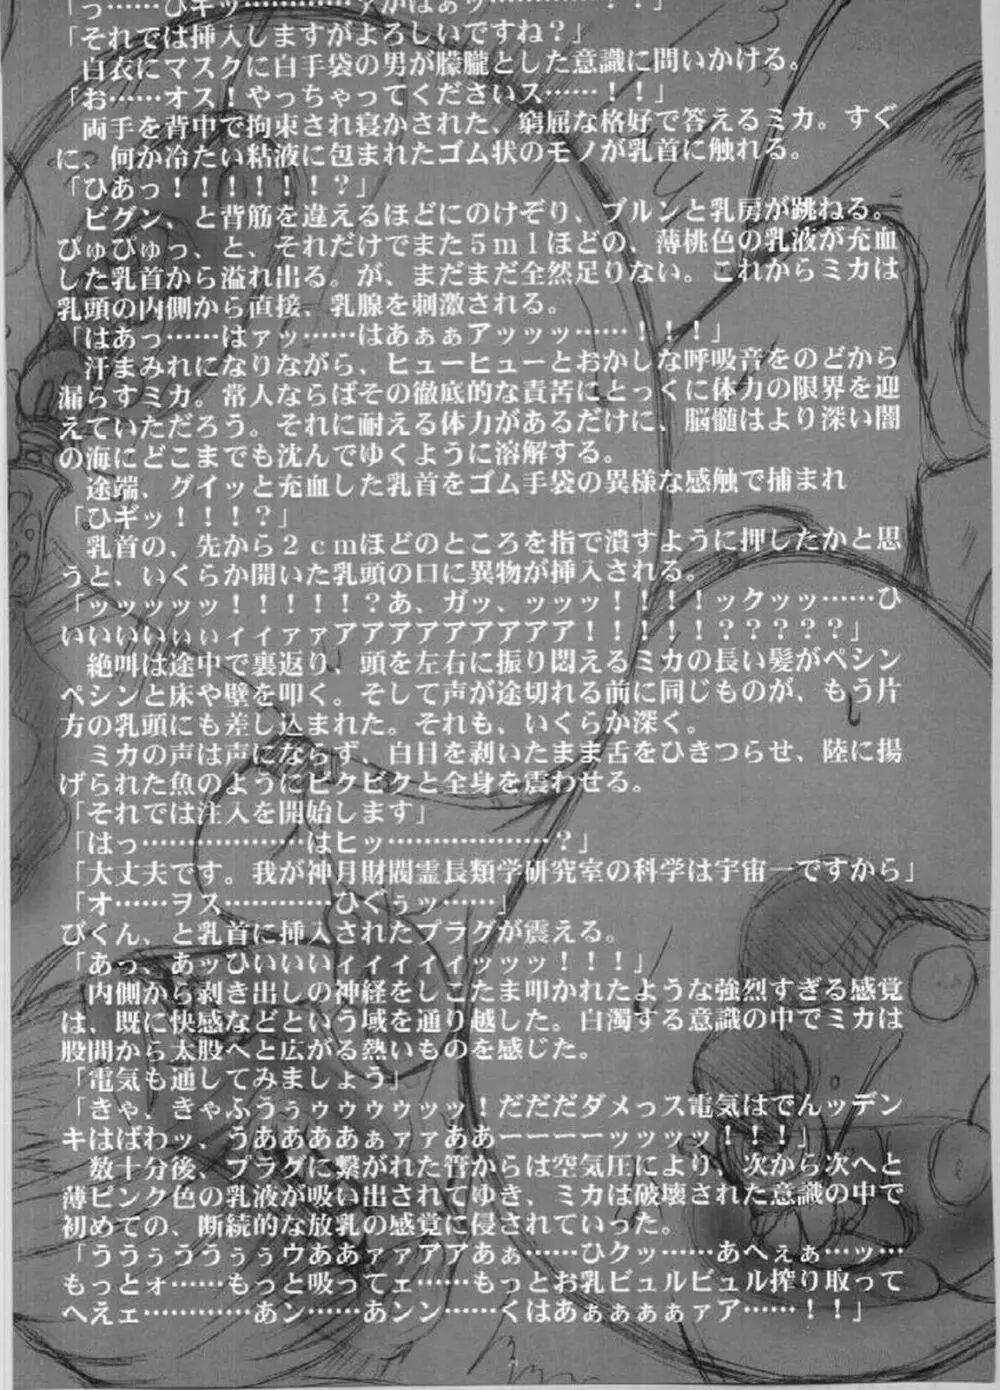 「それでは挿入しますがよろしいですね？」
白衣にマスクに白手袋の男が朦朧とした意識に問いかける。
「お……オス！やっちゃってくださいス……！！」
両手を背中で拘束され寝かされた、窮屈な格好で答えるミカ。すぐ
に、何か冷たい粘液に包まれたゴム状のモノが乳首に触れる。
「ひあっ！！！！！！！？」
ビグン、と背筋を違えるほどにのけぞり、ブルンと乳房が跳ねる。
ぴゅぴゅっ、と、それだけでまた５ｍｌほどの、薄桃色の乳液が充血
した乳首から溢れ出る。が、まだまだ全然足りない。これからミカは
乳頭の内側から直接、乳腺を刺激される。
「はあっ……はァッ……はあぁぁアッッッ……！！！」
汗まみれになりながら、ヒューヒューとおかしな呼吸音をのどから
漏らすミカ。常人ならばその徹底的な責苦にとっくに体力の限界を迎
えていただろう。それに耐える体力があるだけに、脳髄はより深い闇
の海にどこまでも沈んでゆくように溶解する。
途端、グイッと充血した乳首をゴム手袋の異様な感触で捕まれ
「ひギッ！！！？」
乳首の、先から２ｃｍほどのところを指で潰すように押したかと思
うと、いくらか開いた乳頭の口に異物が挿入される。
「ッッッッッ！！！！！？あ、ガッ、ッッッ！！！！ックッッ……ひ
いいいいいぃぃィィァァアアアアアアアアア！！！！！？？？？？」
絶叫は途中で裏返り、頭を左右に振り悶えるミカの長い髪がペシン
ペシンと床や壁を叩く。そして声が途切れる前に同じものが、もう片
方の乳頭にも差し込まれた。それも、いくらか深く。
ミカの声は声にならず、白目を剥いたまま舌をひきつらせ、陸に揚
げられた魚のようにピクピクと全身を震わせる。
「それでは注入を開始します」
「はっ………………はヒッ………………？」
「大丈夫です。我が神月財閥霊長類学研究室の科学は宇宙一ですから」
「オ……ヲス…………ひぐぅッ……」
びくん、と乳首に挿入されたプラグが震える。
「あっ、あッひいいいィィィィィッッッ！！！」
内側から剥き出しの神経をしこたま叩かれたような強烈すぎる感覚
は、既に快感などという域を通り越した。白濁する意識の中でミカは
股間から太股へと広がる熱いものを感じた。
「電気も通してみましょう」
「きゃ、きゃふうぅゥゥゥゥッッ！だだだダメっス電気はでんッデン
キはばわッ、うああああぁァァああーーーーッッッッ！！！」
数十分後、プラグに繋がれた管からは空気圧により、次から次へと
薄ピンク色の乳液が吸い出されてゆき、ミカは破壊された意識の中で
初めての、断続的な放乳の感覚に侵されていった。
「ううぅううぅぅウああァァアアあぁ……ひクッ……あへぇぁ…ッ…
もっとォ……もっと吸ってェ……もっとお乳ビュルビュル搾り取って
へえェ…………あン……あンン……くはあぁぁぁぁァア……！！」